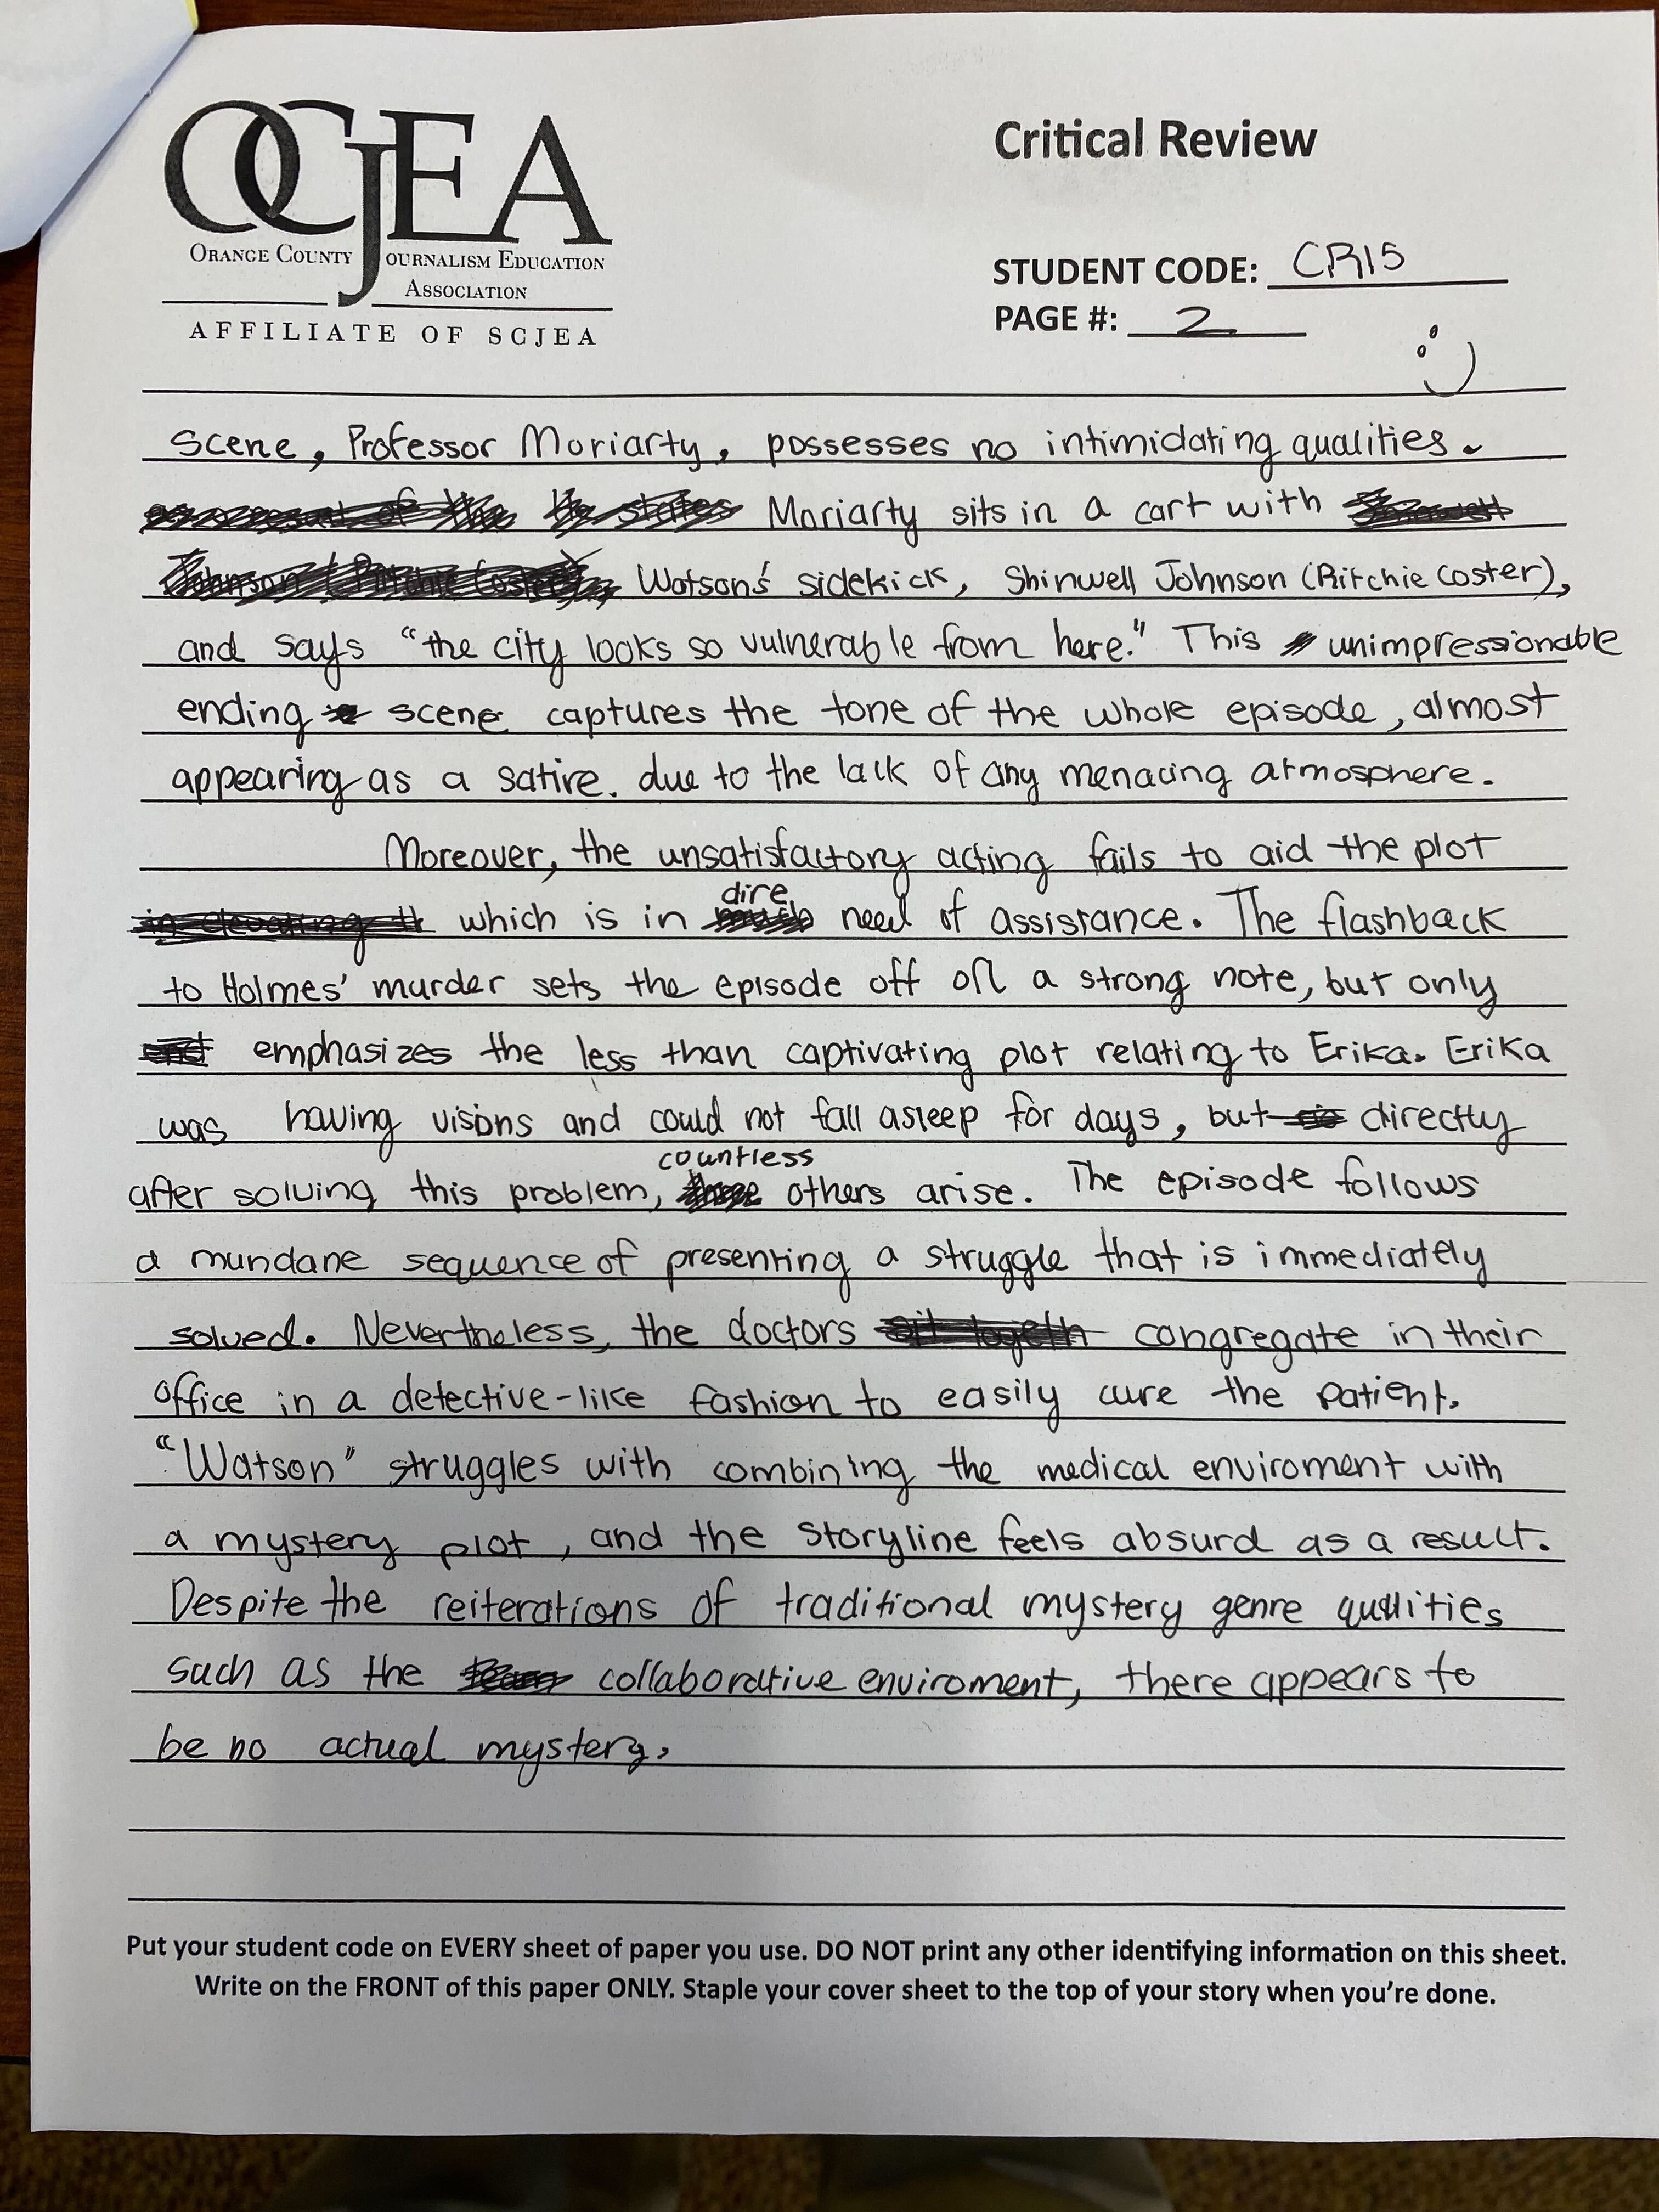 OCJEA
Critical Review
ORANGE COUNTY JOURNALISM EDUCATION
ASSOCIATION
AFFILIATE OF SCJEA
STUDENT CODE: CR15
PAGE #: 2
:)
scene, Professor Moriarty, possesses no intimidating qualities.
Moriarty sits in a cart with
Watson's sidekick, Shinwell Johnson (Ritchie Coster),
and says "the city looks so vulnerable from here." This unimpressionable
ending scene captures the tone of the whole episode, almost
appearing as a satire. due to the lack of any menacing atmosphere.
Moreover, the unsatisfactory acting fails to aid the plot
which is in dire need of assistance. The flashback
to Holmes' murder sets the episode off on a strong note, but only
emphasizes the less than captivating plot relating to Erika. Erika
was having visions and could not fall asleep for days, but directly
after solving this problem, countless others arise. The episode follows
a mundane sequence of presenting a struggle that is immediately
solved. Nevertheless, the doctors congregate in their
office in a detective-like fashion to easily cure the patient.
"Watson" struggles with combining the medical enviroment with
a mystery plot, and the storyline feels absurd as a result.
Despite the reiterations of traditional mystery genre qualities
such as the collaborative enviroment, there appears to
be no actual mystery.
Put your student code on EVERY sheet of paper you use. DO NOT print any other identifying information on this sheet.
Write on the FRONT of this paper ONLY. Staple your cover sheet to the top of your story when you're done.